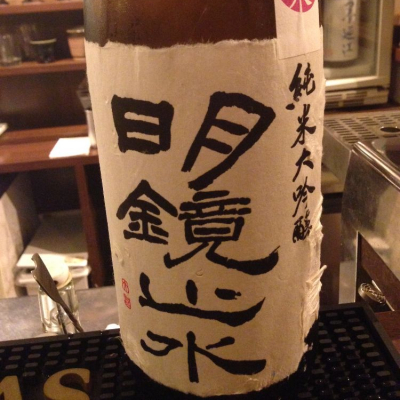 明鏡止水
純米大吟醸
MS